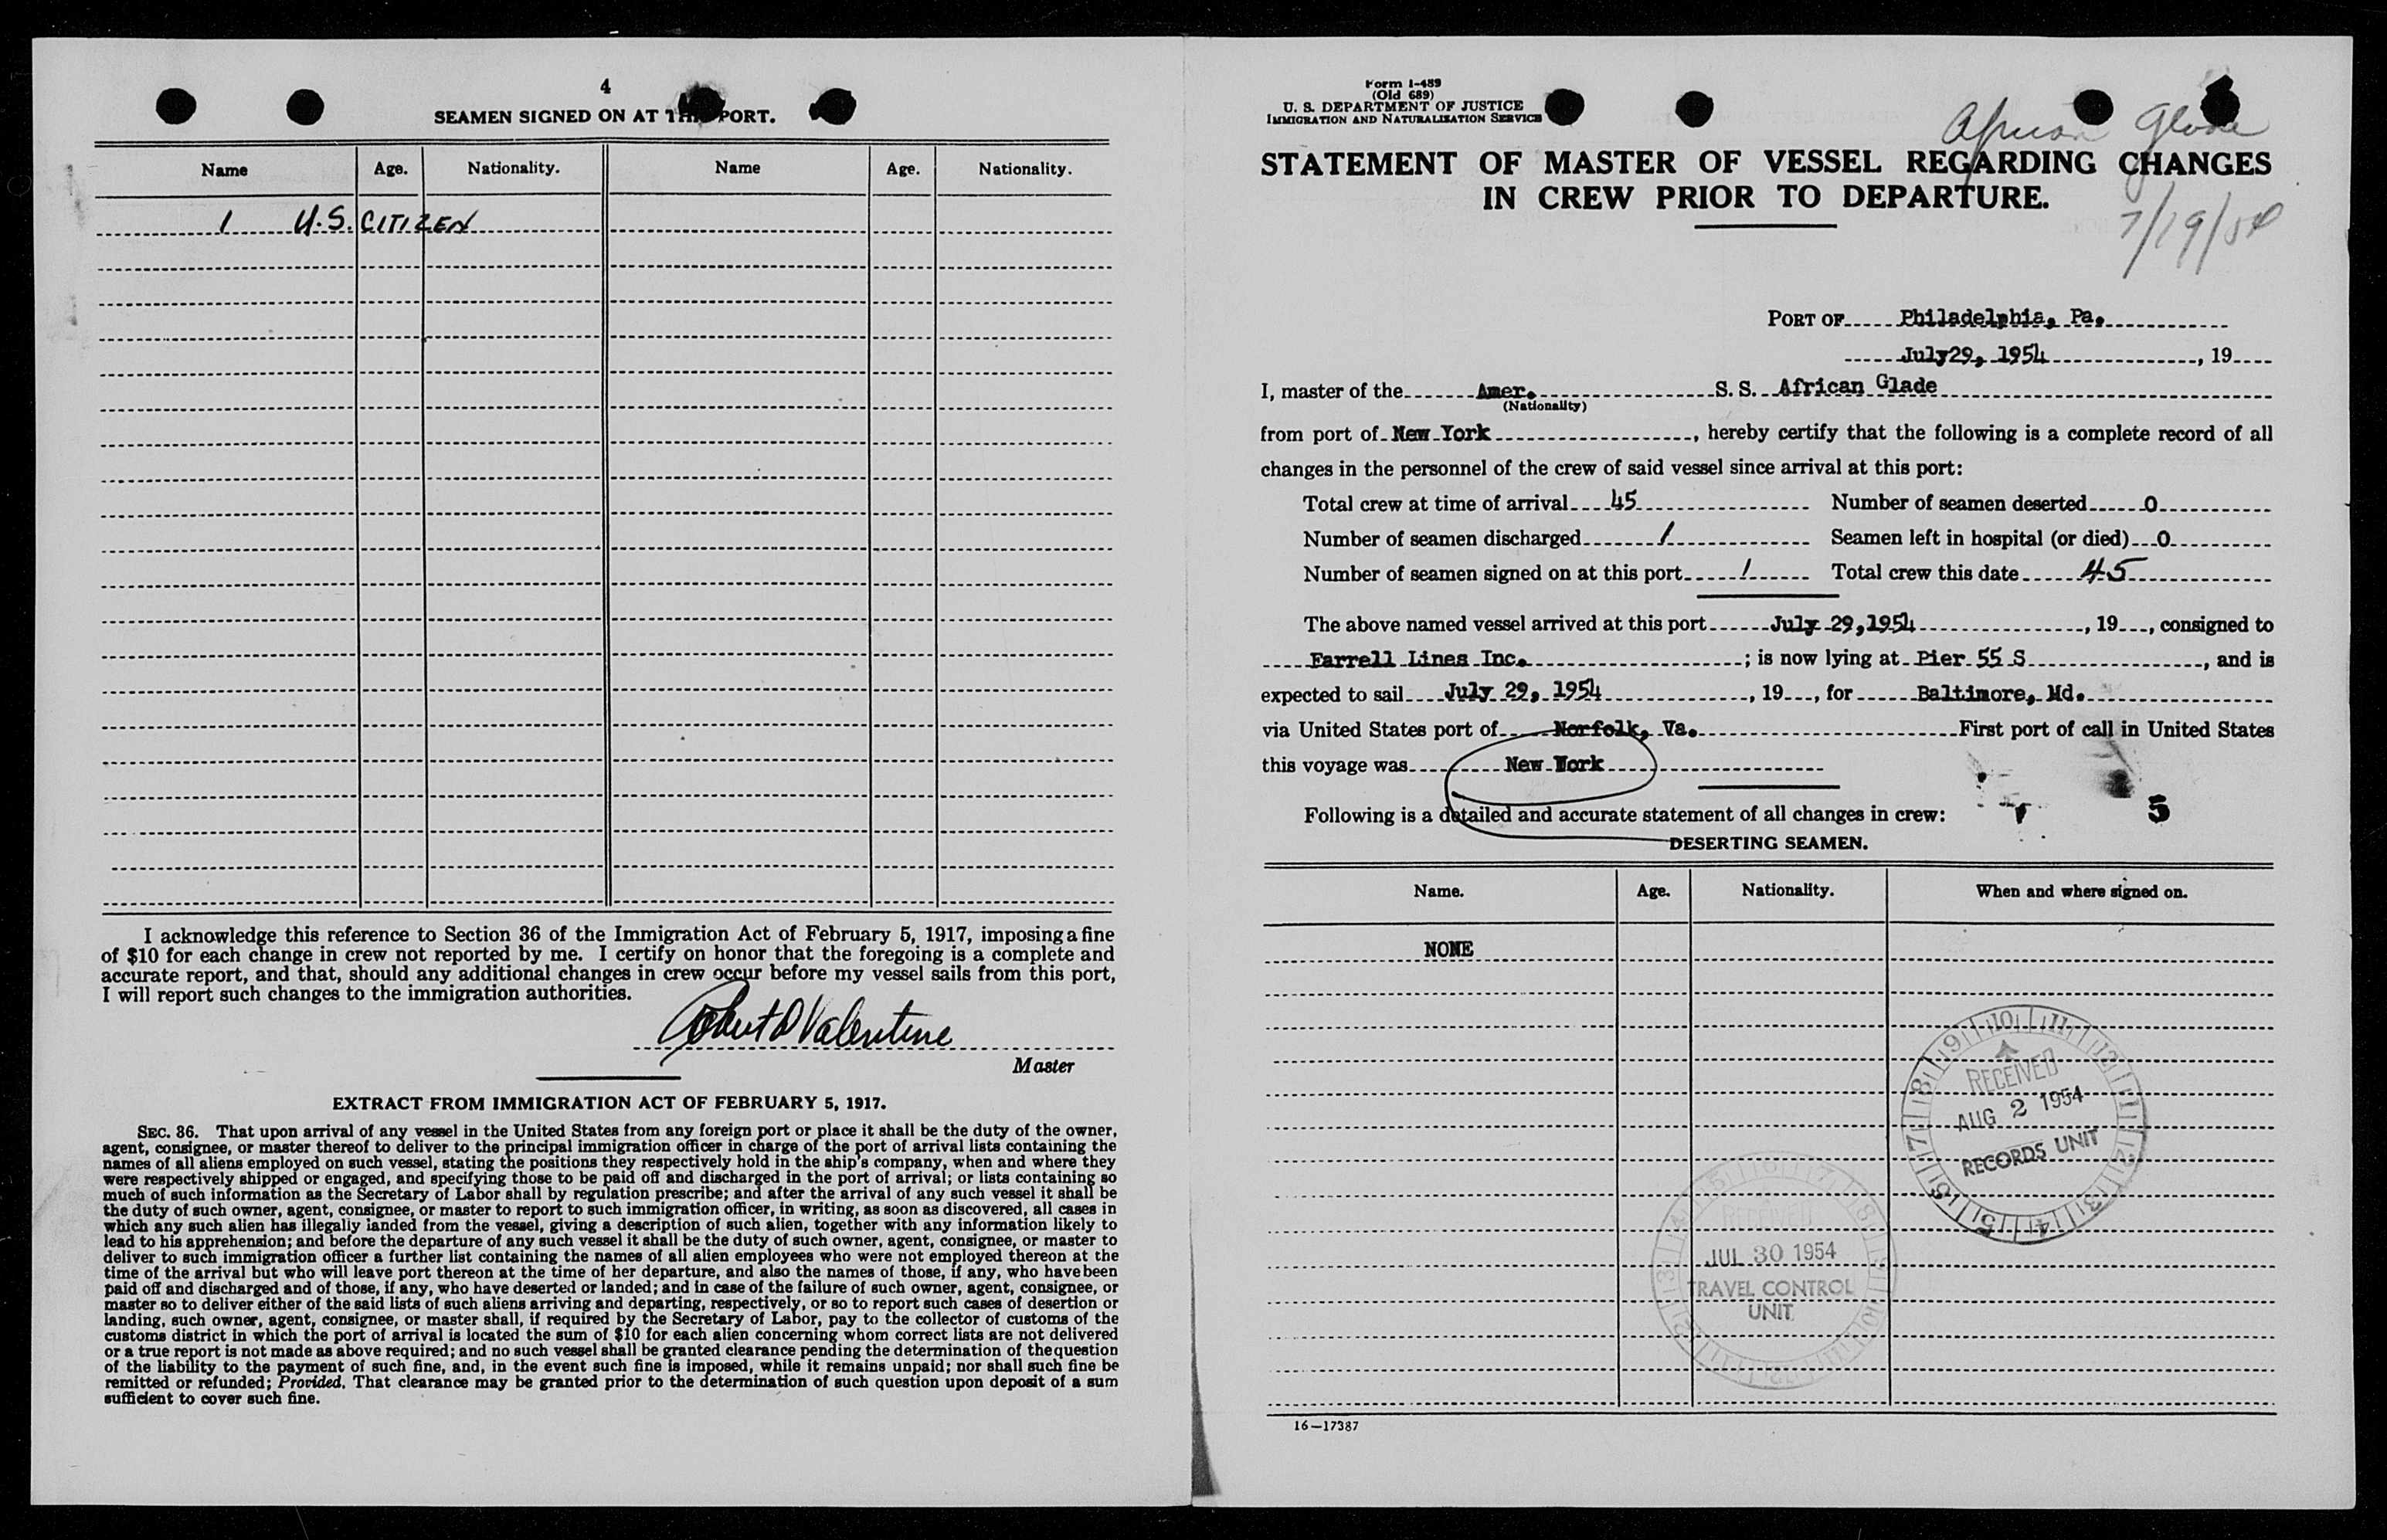 4
SEAMEN SIGNED ON AT THIS PORT.
Name Age. Nationality. Name Age. Nationality.
1 U.S. CITIZEN
I acknowledge this reference to Section 36 of the Immigration Act of February 5, 1917, imposing a fine
of $10 for each change in crew not reported by me. I certify on honor that the foregoing is a complete and
accurate report, and that, should any additional changes in crew occur before my vessel sails from this port,
I will report such changes to the immigration authorities.
Robert D Valentine
Master
EXTRACT FROM IMMIGRATION ACT OF FEBRUARY 5, 1917.
SEC. 36. That upon arrival of any vessel in the United States from any foreign port or place it shall be the duty of the owner,
agent, consignee, or master thereof to deliver to the principal immigration officer in charge of the port of arrival lists containing the
names of all aliens employed on such vessel, stating the positions they respectively hold in the ship's company, when and where they
were respectively shipped or engaged, and specifying those to be paid off and discharged in the port of arrival; or lists containing so
much of such information as the Secretary of Labor shall by regulation prescribe; and after the arrival of any such vessel it shall be
the duty of such owner, agent, consignee, or master to report to such immigration officer, in writing, as soon as discovered, all cases in
which any such alien has illegally landed from the vessel, giving a description of such alien, together with any information likely to
lead to his apprehension; and before the departure of any such vessel it shall be the duty of such owner, agent, consignee, or master to
deliver to such immigration officer a further list containing the names of all alien employees who were not employed thereon at the
time of the arrival but who will leave port thereon at the time of her departure, and also the names of those, if any, who have been
paid off and discharged and of those, if any, who have deserted or landed; and in case of the failure of such owner, agent, consignee, or
master so to deliver either of the said lists of such aliens arriving and departing, respectively, or so to report such cases of desertion or
landing, such owner, agent, consignee, or master shall, if required by the Secretary of Labor, pay to the collector of customs of the
customs district in which the port of arrival is located the sum of $10 for each alien concerning whom correct lists are not delivered
or a true report is not made as above required; and no such vessel shall be granted clearance pending the determination of the question
of the liability to the payment of such fine, and, in the event such fine is imposed, while it remains unpaid; nor shall such fine be
remitted or refunded; Provided, That clearance may be granted prior to the determination of such question upon deposit of a sum
sufficient to cover such fine.
Form I-489
(Old 689)
U. S. DEPARTMENT OF JUSTICE
IMMIGRATION AND NATURALIZATION SERVICE
African Glade
STATEMENT OF MASTER OF VESSEL REGARDING CHANGES
IN CREW PRIOR TO DEPARTURE.
7/29/54
PORT OF Philadelphia, Pa.
July29, 1954, 19
I, master of the Amer. S. S. African Glade
(Nationality)
from port of New York, hereby certify that the following is a complete record of all
changes in the personnel of the crew of said vessel since arrival at this port:
Total crew at time of arrival 45 Number of seamen deserted 0
Number of seamen discharged 1 Seamen left in hospital (or died) 0
Number of seamen signed on at this port 1 Total crew this date 45
The above named vessel arrived at this port July 29,1954, 19, consigned to
Farrell Lines Inc.; is now lying at Pier 55 S, and is
expected to sail July 29, 1954, 19, for Baltimore, Md.
via United States port of Norfolk, Va. First port of call in United States
this voyage was New York
Following is a detailed and accurate statement of all changes in crew:
5
DESERTING SEAMEN.
Name. Age. Nationality. When and where signed on.
NONE
RECEIVED
AUG 2 1954
RECORDS UNIT
RECEIVED
JUL 30 1954
TRAVEL CONTROL
UNIT
16—17387